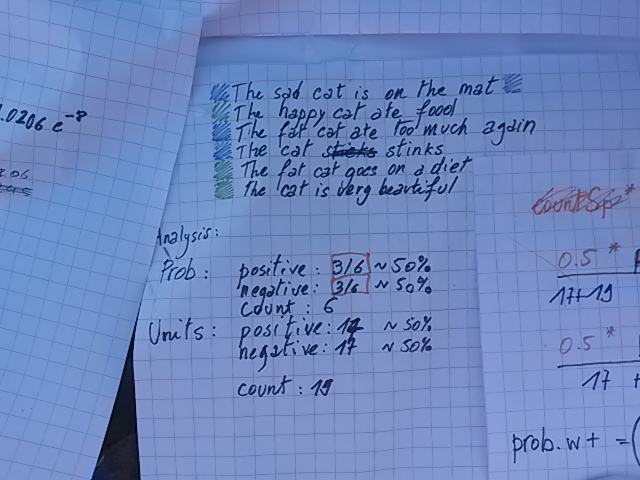 .0206 e^-8
The sad cat is on the mat
The happy cat ate food
The fat cat ate too much again
The cat stinks
The fat cat goes on a diet
The cat is very beautiful
Analysis:
Prob: positive: 3/6 ~ 50%
negative: 3/6 ~ 50%
count: 6
Units: positive: 17 ~ 50%
negative: 17 ~ 50%
count: 19
countSpz*
0.5 *
17+19
0.5 *
17 +
prob. w + = (